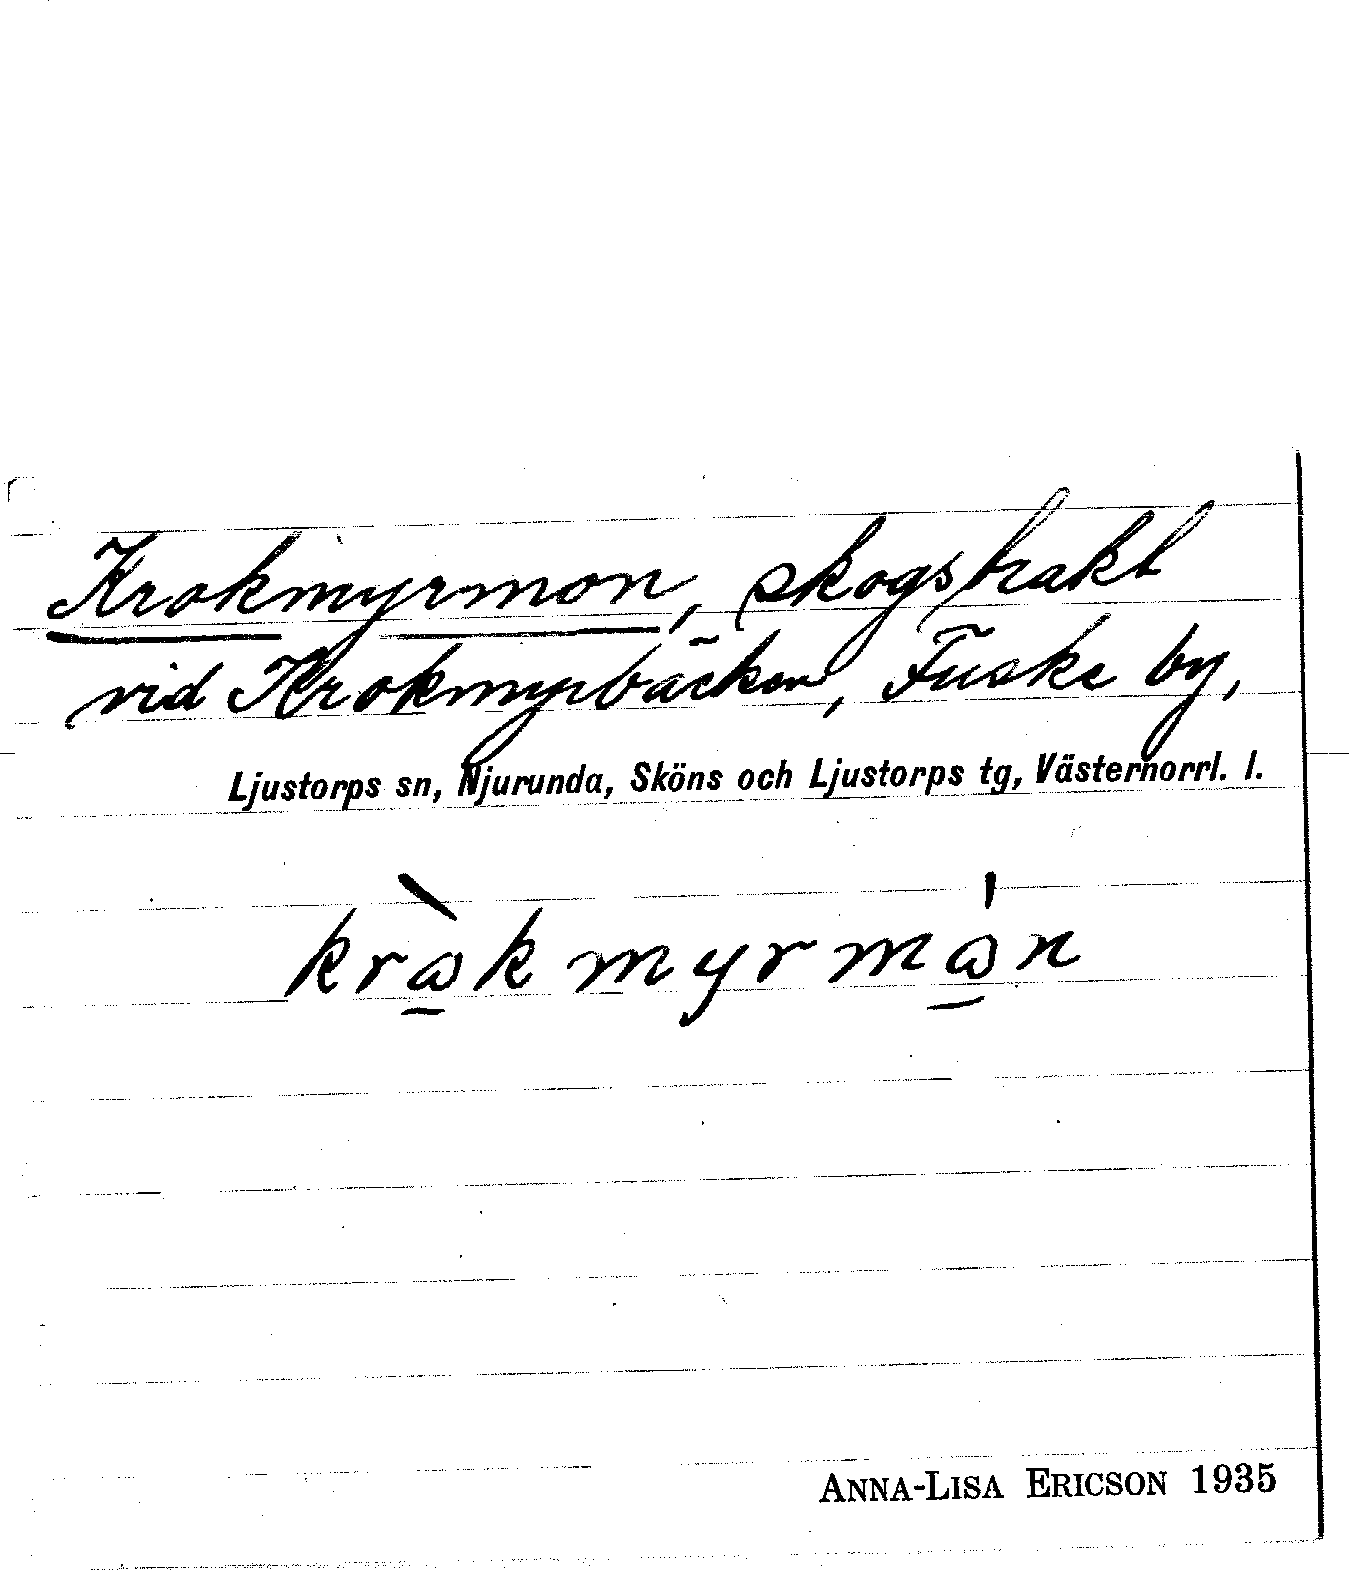 Krokmyrmon, skogstrakt
vid Krokmyrbäcken, Fuske by,
Ljustorps sn, Njurunda, Sköns och Ljustorps tg, Västernorrl. l.
ANNA-LISA ERICSON 1935